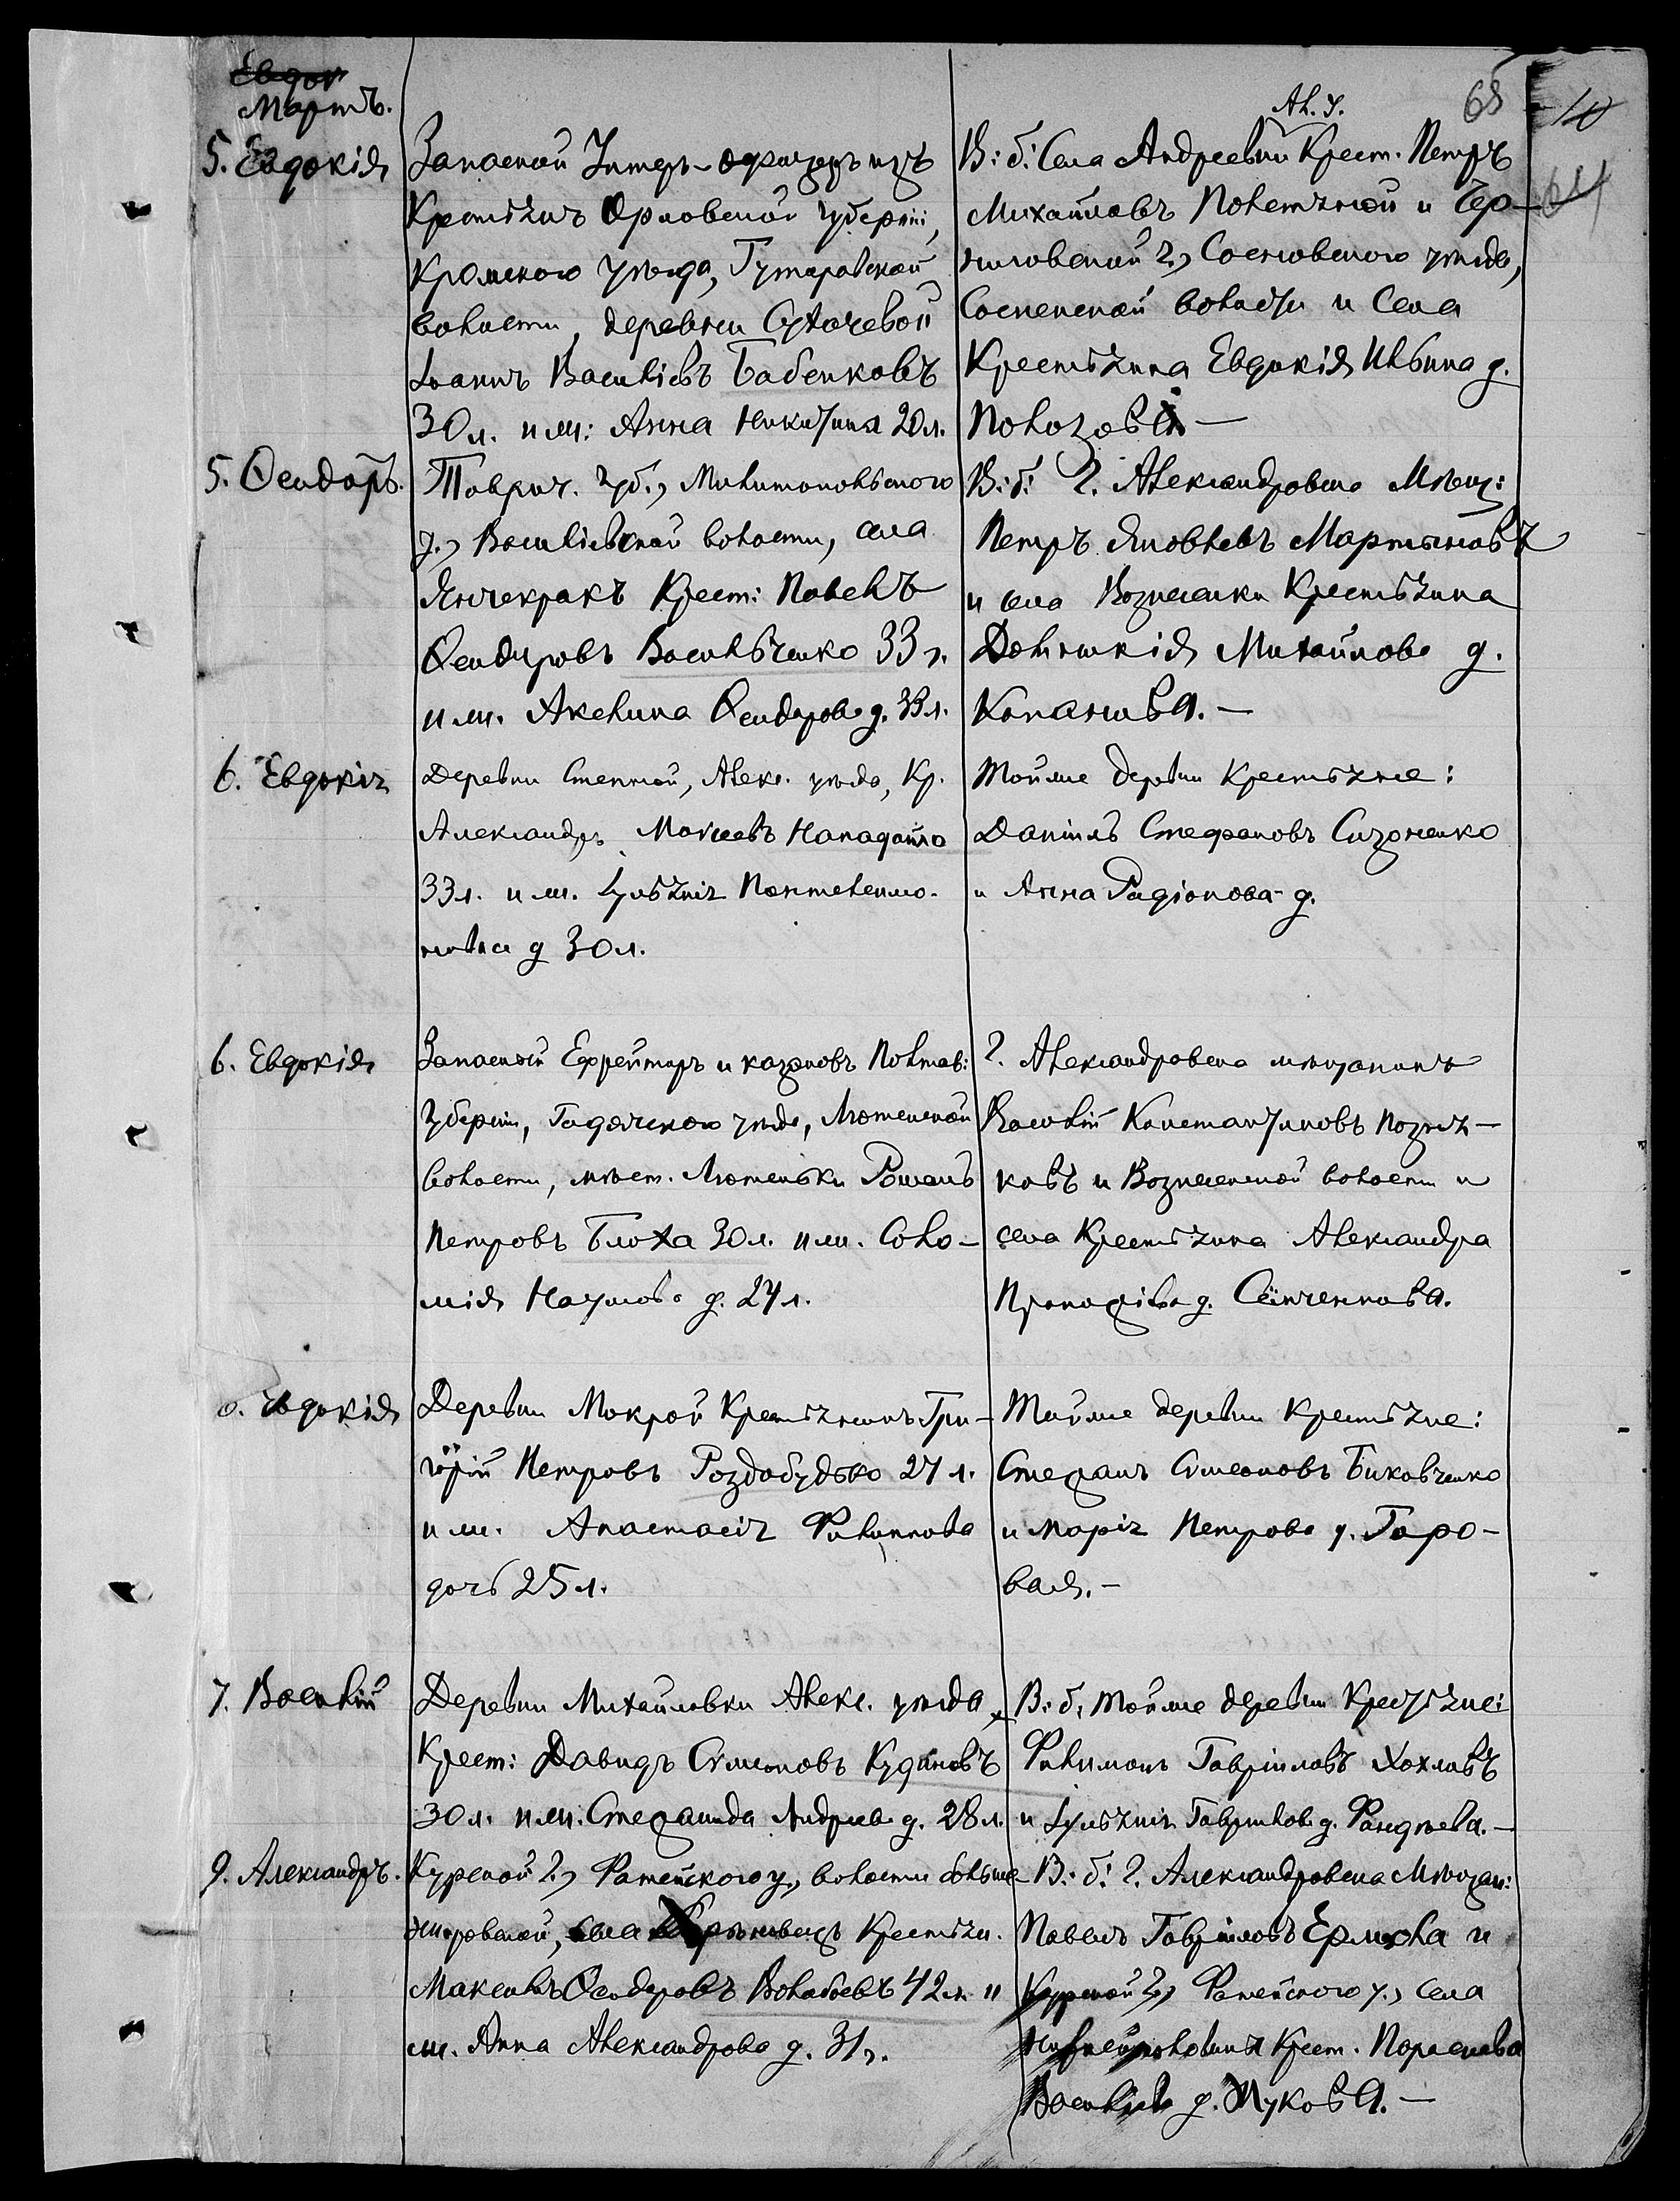 Евдок
Мартъ.
Ал. у.
65
10
64
5. Евдокія
Запасной Унтеръ-офицеръ изъ
Крестьянъ Орловской губерніи,
Кромского уѣзда, Гутаровской
волости, деревни Сухочевой
Іоаннъ Василіевъ Бабенковъ
30 л. и ж: Анна Никитина 20 л.
В: б: Села Андреевки Крест. Петръ
Михайловъ Полетчкой и Чер-
ниговской г., Сосновского уѣзда,
волости и Села
Крестьянка Евдокія Ильина д.
Полозова —
5. Ѳеодоръ.
Таврич. губ., Милитопольского
у., Василіевской волости, села
Янчекракъ Крест: Павелъ
Ѳеодоровъ Васильченко 33 г.
и ж. Акелина Ѳеодорова д. 33 л.
В: б: Г. Александровска Мѣщ:
Петръ Яковлевъ Мартыновъ
и села Вознесенки Крестьянка
Домникія Михайлова д.
Копанева. —
6. Евдокія
Деревни Степной, Алекс. уѣзда, Кр.
Александръ Моисеевъ Нападайло
33 л. и ж. Іуліанія Пантелеимо-
новна д 30 л.
Той же деревни Крестьяне:
Даніилъ Стефановъ Сизоненко
и Анна Родіонова д.
6. Евдокія
Запасной Ефрейторъ и козаковъ Полтав:
Губерніи, Гадячского уѣзда, Лютенской
волости, мѣст. Лютеньки Романъ
Петровъ Блоха 30 л. и ж. Соло-
мія Наумова д. 24 л.
Г. Александровска мѣщанинъ
Василій Константиновъ Позня-
ковъ и Вознесенской волости и
села Крестьянка Александра
Прокопіева д. Сѣнченкова.
6. Евдокія
Деревни Мокрой Крестьянинъ Гри-
горій Петровъ Роздобудько 27 л.
и ж. Анастасія Филиппова
дочь 25 л.
Той же деревни Крестьяне:
Стефанъ Симеоновъ Биковченко
и Марія Петрова д. Гаро-
вая. —
7. Василій
Деревни Михайловки Алекс. уѣзда,
Крест: Давидъ Симеоновъ Кудиновъ
30 л. и ж. Стефанида Андреева д. 28 л.
В: б: той же деревни Крестьяне:
Филимонъ Гавріиловъ Хохловъ
и Іуліанія Гаврилова д. Фандѣева. —
9. Александръ.
Курской г., Фатежского у., волости Больше-
жировской, села Крестьян.
Максимъ Ѳеодоровъ Волобоевъ 42 л. и
ж. Анна Александрова д. 31 г.
В: б: Г. Александровска Мѣщан:
Павелъ Гавріиловъ Ермола и
Курской г., Фатежского у., села
Крест. Параскева
Василіева д. Жукова. —